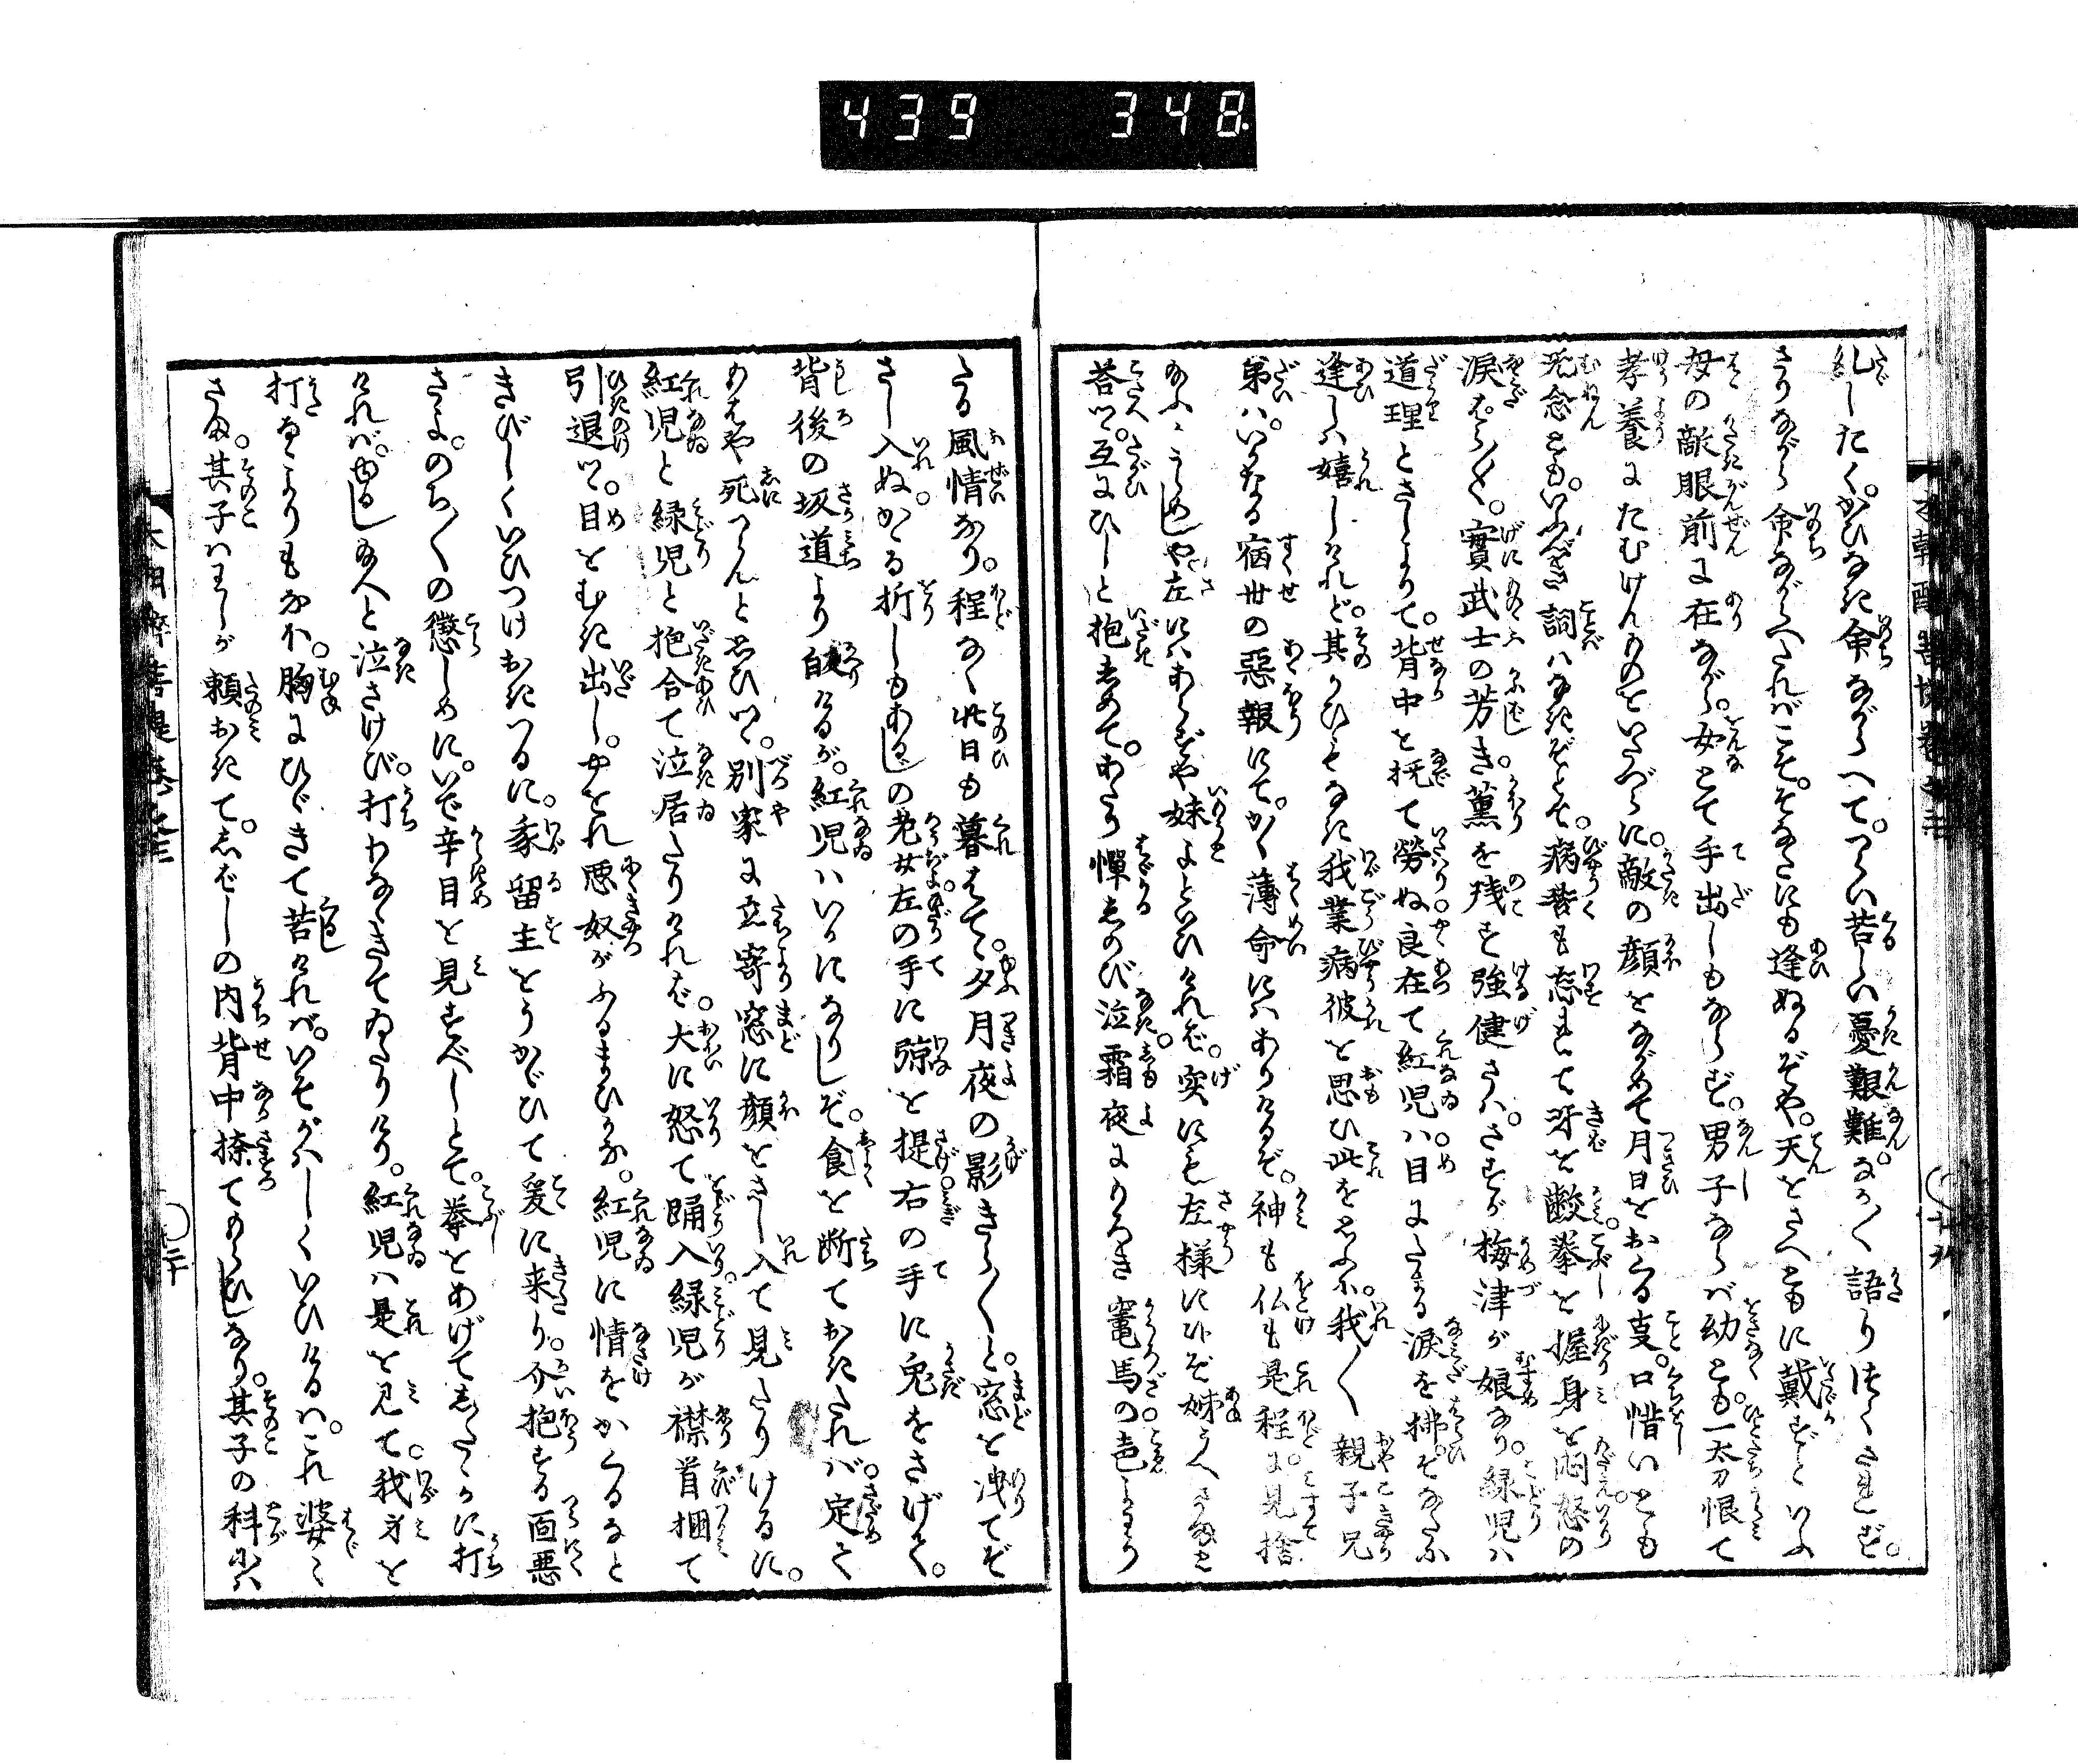 439 348
本朝酔菩提巻之三
糺したく。かひなき命ながらへて。つらい苦しい憂艱難。なか〳〵語りつくされず。
さりながら命ながらへたればこそ。そなたにも逢ぬるぞや。天をさへともに戴ずといふ
母の敵眼前に在ながら。女とて手出しもならず。男子ならば幼とも。一太刀恨て
孝養にたむけんものをといたづらに。敵の顔をながめて月日をおくる支。口惜いとも
無念とも。いふべき詞はなきぞとて。病苦も忘れて牙を齩。拳を握身を悶。怒の
涙はら〳〵。實武士の芳き。薫を残す強健さは。さすが梅津が娘なり。緑児は
道理とさしよりて。背中を抚て勞ぬ良在て紅児は。目にたまる涙を拂。そなたに
逢しは嬉しけれど。其かひもなき我業病彼を思ひ此を思ふに。我〳〵親子兄
弟は。いかなる宿世の悪報にて。かく薄命にはありけるぞ。神も仏も是程に。見捨
給ふ。うらめしや左にはあらずや妹よといひければ。実にも左様に候ぞ姉うへさまと
答つ。互にひしと抱しめて。あたり憚しのび泣。霜夜によわき竃馬の声よはり
たる風情なり。程なく此日も暮はて。夕月夜の影きら〳〵と。窓を洩てぞ
さし入ぬ。かゝる折しもあるじの老女。左の手に弶を提。右の手に兎をさげて。
背後の坂道より皈けるが。紅児はいかになりしぞ。食を断ておきたれば。定て
めはや死つらんと思ひつ。別家に立寄窓に顔をさし入て見たりけるに。
紅児と緑児と抱合て泣居たりければ。大に怒て踊入。緑児が襟首掴て
引退つ。目をむき出し。やをれ悪奴がふるまひかな。紅児に情をかくるなと
きびしくいひつけおきつるに。我留主をうかゞひて爰に来り。介抱する面悪
さよ。のち〳〵の懲しめに。いで辛目を見すべしとて。拳をあげてしたゝかに打
ければ。ゆるし給へと泣さけび。打わなゝきてゐたりけり。紅児は是を見て。我身を
打るゝよりもなほ。胸にひゞきて苦しければ。いそがはしくいひけるは。これ婆ゝ
さま。其子はわしが頼おきて。しばしの内背中捺てもらひしなり。其子の科には
本朝酔菩提巻之三